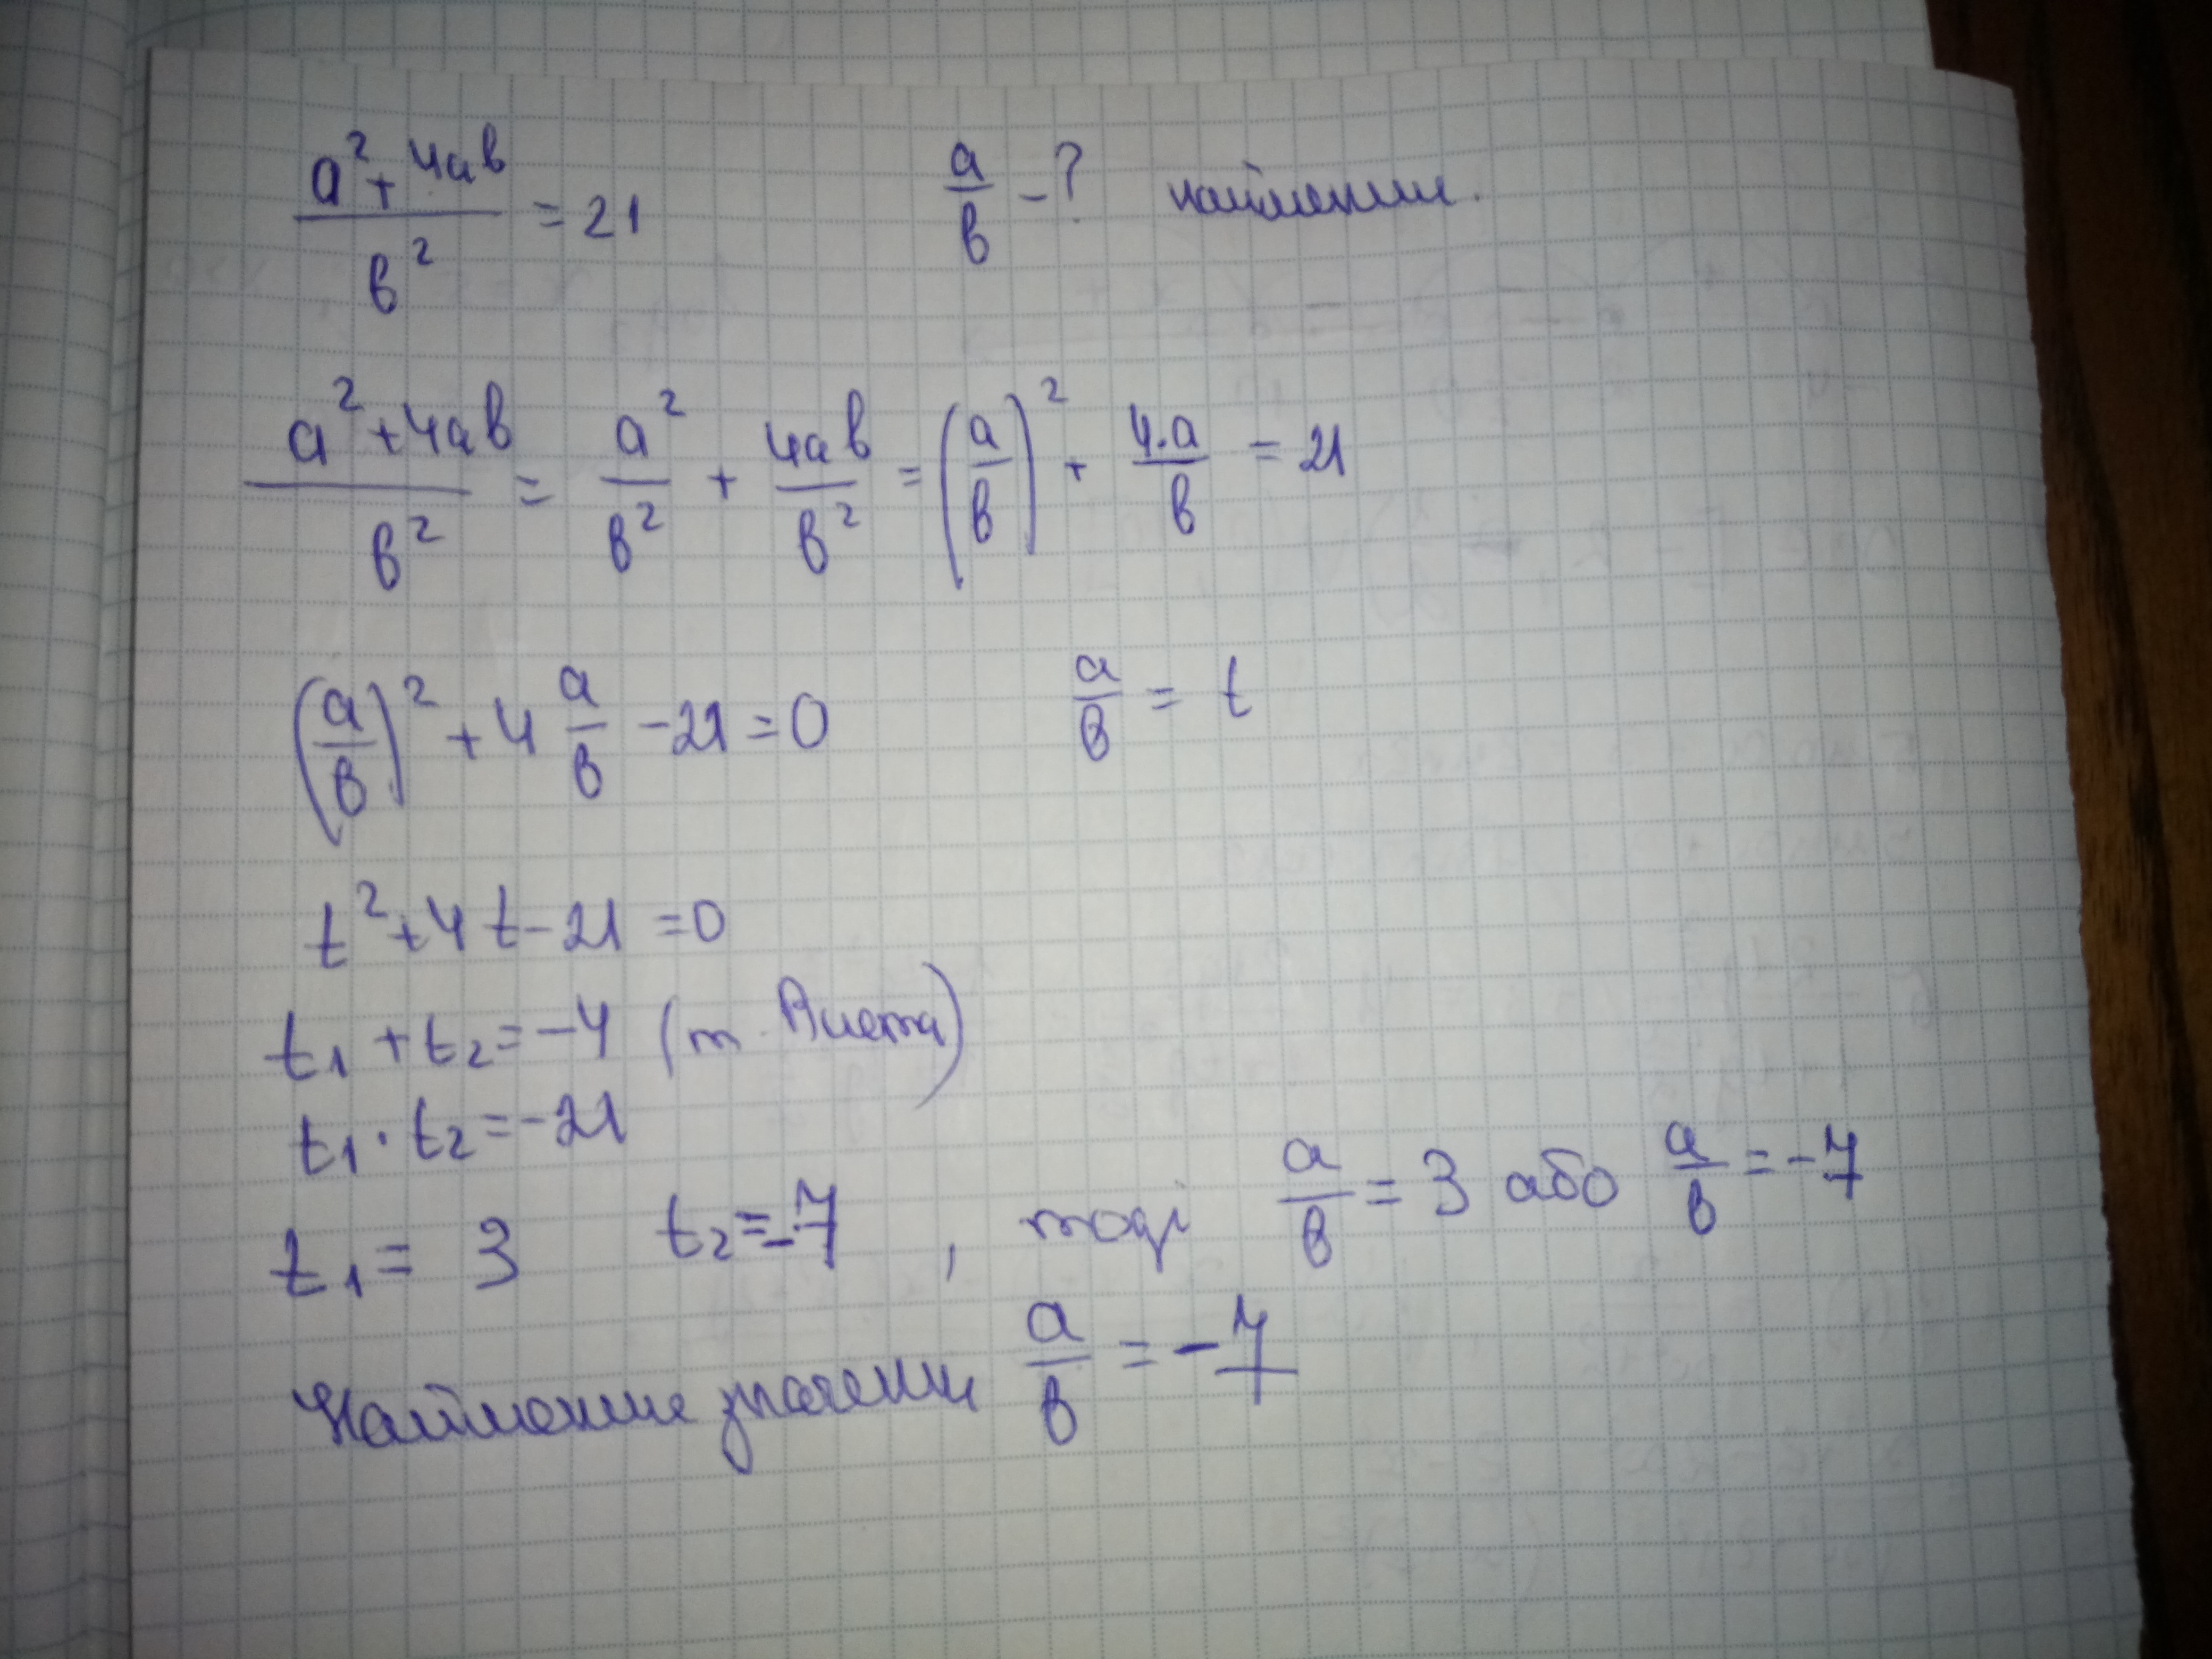 a² + 4ab / b² = 21    a/b - ? найменше.
a² + 4ab / b² = a² / b² + 4ab / b² = (a/b)² + 4·a / b = 21
(a/b)² + 4 a/b - 21 = 0    a/b = t
t² + 4t - 21 = 0
t₁ + t₂ = -4 (т. Виета)
t₁ · t₂ = -21
t₁ = 3    t₂ = -7 , тоді a/b = 3 або a/b = -7
Найменше значення a/b = -7